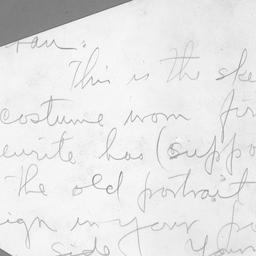 This is the ske
costume worn fir
ewrite has (suppo
the old portrait
ign in your po
side. Your